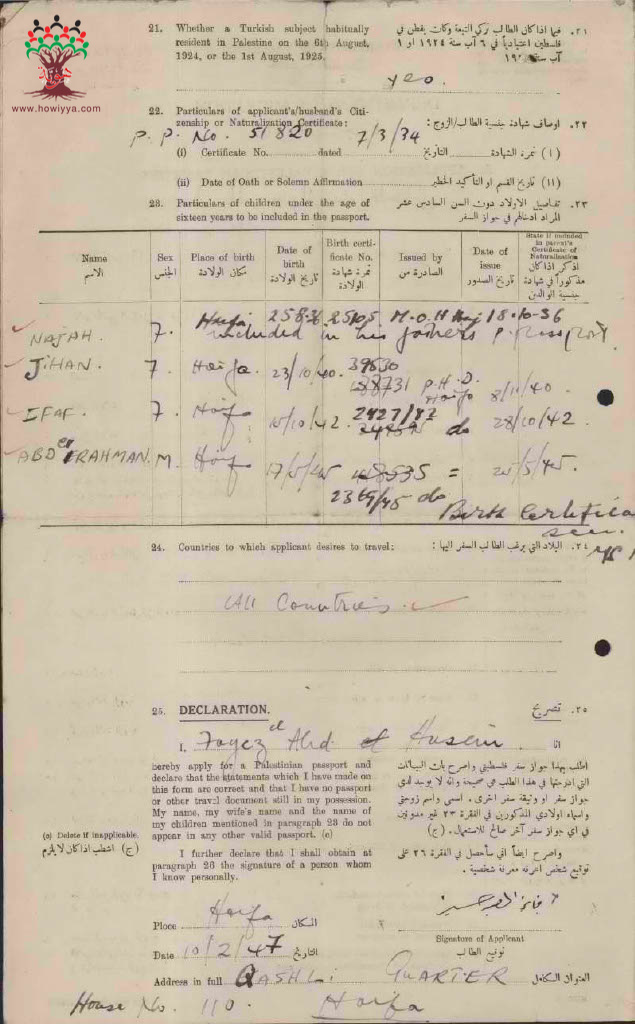 www.howiyya.com
21. Whether a Turkish subject habitually
resident in Palestine on the 6th August,
1924, or the 1st August, 1925.
yes.
٢١. فيما اذا كان الطالب تركي التبعة وكان يقطن في
فلسطين اعتيادياً في ٦ آب سنة ١٩٢٤ او ١
22. Particulars of applicant's/husband's Citi-
zenship or Naturalization Certificate:
٢٢. اوصاف شهادة جنسية الطالب/الزوج:
P.P. No. 51820 7/3/34
(i) Certificate No. dated
التاريخ (١) نمرة الشهادة
(ii) Date of Oath or Solemn Affirmation
(١١) تاريخ القسم او التأكيد الخطير
23. Particulars of children under the age of
sixteen years to be included in the passport.
٢٣. تفاصيل الاولاد دون السن السادس عشر
المراد ادخالهم في جواز السفر
Name الاسم
Sex الجنس
Place of birth مكان الولادة
Date of birth تاريخ الولادة
Birth certi-
ficate No. نمرة شهادة الولادة
Issued by الصادرة من
Date of issue تاريخ الصدور
State if included
in parent's
Certificate of
Naturalisation
اذكر اذا كان
مذكوراً في شهادة
جنسية الوالدين
NAJAH. F. Haifa 25836 25105 M.O.H 18-10-36
included in his fathers p. passport
JIHAN. F. Haifa. 23/10/40. 39830
88731 P.H.D. Haifa 8/11/40
IFAF. F. Haifa 15/10/42. 2427/82 do 28/10/42
ABD el RAHMAN. M Haifa 17/5/45 = 25/5/45.
2369/45 do
Birth Certifica
seen.
24. Countries to which applicant desires to travel:
٢٤. البلاد التي يرغب الطالب السفر اليها:
All Countries
25. DECLARATION.
٢٥. تصريح
I, Fayez Abd el Husein انا
hereby apply for a Palestinian passport and
declare that the statements which I have made on
this form are correct and that I have no passport
or other travel document still in my possession.
My name, my wife's name and the name of
my children mentioned in paragraph 23 do not
appear in any other valid passport. (c)
اطلب بهذا جواز سفر فلسطيني واصرح بان البيانات
التي ادرجتها في هذا الطلب هي صحيحة وانه لا يوجد لدي
جواز سفر او وثيقة سفر اخرى. اسمي واسم زوجتي
واسماء اولادي المذكورين في الفقرة ٢٣ غير مدونين
في اي جواز سفر آخر صالح للاستعمال. (ج)
(c) Delete if inapplicable.
(ج) اشطب اذا كان لا يلزم
I further declare that I shall obtain at
paragraph 26 the signature of a person whom
I know personally.
واصرح ايضاً اني سأحصل في الفقرة ٢٦ على
توقيع شخص اعرفه معرفة شخصية.
Place Haifa المكان
Date 10/2/47 التاريخ
Signature of Applicant
توقيع الطالب
Address in full QASHLI QUARTER العنوان الكامل
House No. 110. Haifa